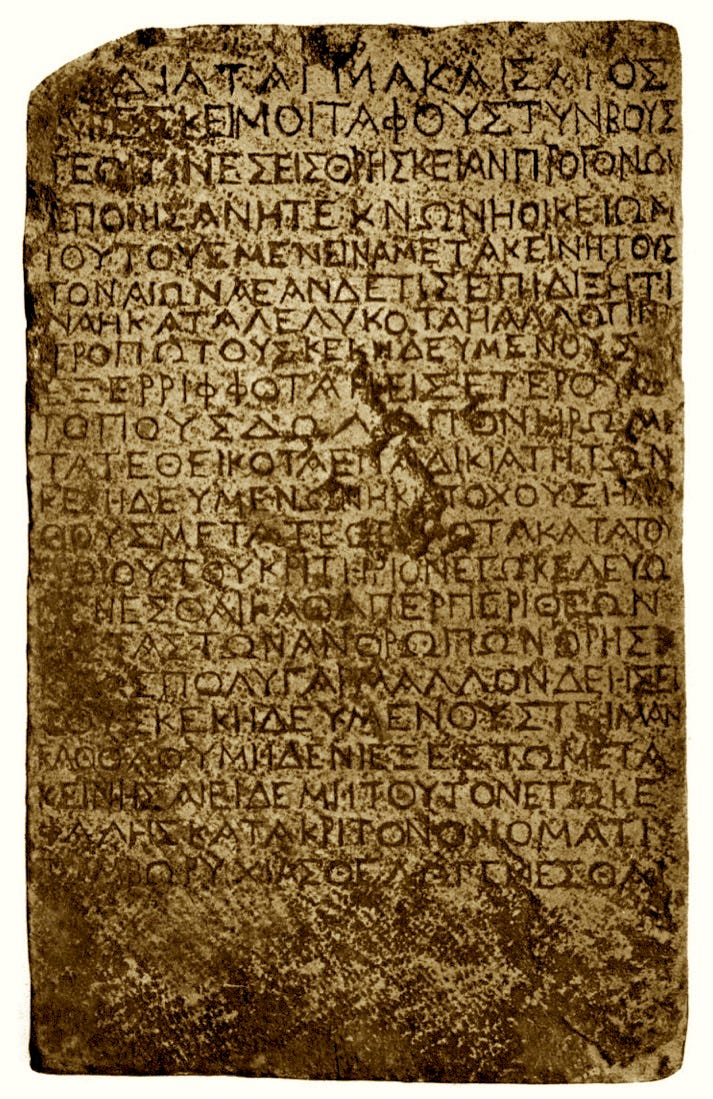 ΔΙΑΤΑΓΜΑΚΑΙΣΑΡΟΣ
ΑΡΕΣΚΕΙΜΟΙΤΑΦΟΥΣΤΥΝΒΟΥΣ
ΤΕΟΙΤΙΝΕΣΕΙΣΘΡΗΣΚΕΙΑΝΠΡΟΓΟΝΩΝ
ΕΠΟΙΗΣΑΝΗΤΕΚΝΩΝΗΟΙΚΕΙΩΝ
ΤΟΥΤΟΥΣΜΕΝΕΙΝΑΜΕΤΑΚΕΙΝΗΤΟΥΣ
ΤΟΝΑΙΩΝΑΕΑΝΔΕΤΙΣΕΠΙΔΙΞΗΤΙ
ΝΑΗΚΑΤΑΛΕΛΥΚΟΤΑΗΑΛΛΩΤΙΝΙ
ΤΡΟΠΩΤΟΥΣΚΕΚΗΔΕΥΜΕΝΟΥΣ
ΕΞΕΡΡΙΦΦΟΤΑΗΕΙΣΕΤΕΡΟΥΣ
ΤΟΠΟΥΣΔΩΛΩΠΟΝΗΡΩΜΕ
ΤΑΤΕΘΕΙΚΟΤΑΕΠΑΔΙΚΙΑΤΗΤΩΝ
ΚΕΚΗΔΕΥΜΕΝΩΝΗΚΑΤΟΧΟΥΣΗΛΙ
ΘΟΥΣΜΕΤΑΤΕΘΕΙΚΟΤΑΚΑΤΑΤΟΥ
ΤΟΙΟΥΤΟΥΚΡΙΤΗΡΙΟΝΕΓΩΚΕΛΕΥΩ
ΝΕΣΘΑΙΚΑΘΑΠΕΡΠΕΡΙΘΕΩΝ
ΤΑΣΤΩΝΑΝΘΡΩΠΩΝΘΡΗΣ
ΣΠΟΛΥΓΑΡΜΑΛΛΟΝΔΕΗΣΕΙ
ΤΟΥΣΚΕΚΗΔΕΥΜΕΝΟΥΣΤΕΙΜΑΝ
ΚΑΘΟΛΟΥΜΗΔΕΝΙΕΞΕΣΤΩΜΕΤΑ
ΚΕΙΝΗΣΑΙΕΙΔΕΜΗΤΟΥΤΟΝΕΓΩΚΕ
ΦΑΛΗΣΚΑΤΑΚΡΙΤΟΝΟΝΟΜΑΤΙ
ΤΥΜΒΩΡΥΧΙΑΣΘΕΛΩΓΕΝΕΣΘΑΙ